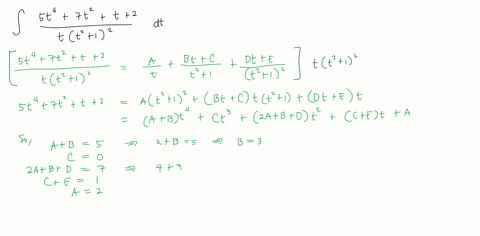 ∫ (5t⁴ + 7t² + t + 2) / (t(t²+1)²) dt
[ (5t⁴ + 7t² + t + 2) / (t(t²+1)²) = A/t + (Bt + C)/(t²+1) + (Dt + E)/(t²+1)² ] t(t²+1)²
5t⁴ + 7t² + t + 2 = A(t²+1)² + (Bt + C) t(t²+1) + (Dt + E) t
= (A+B)t⁴ + Ct³ + (2A+B+D)t² + (C+E)t + A
So, A+B = 5 ⇒ 2+B = 5 ⇒ B = 3
C = 0
2A+B+D = 7 ⇒ 4+3
C+E = 1
A = 2